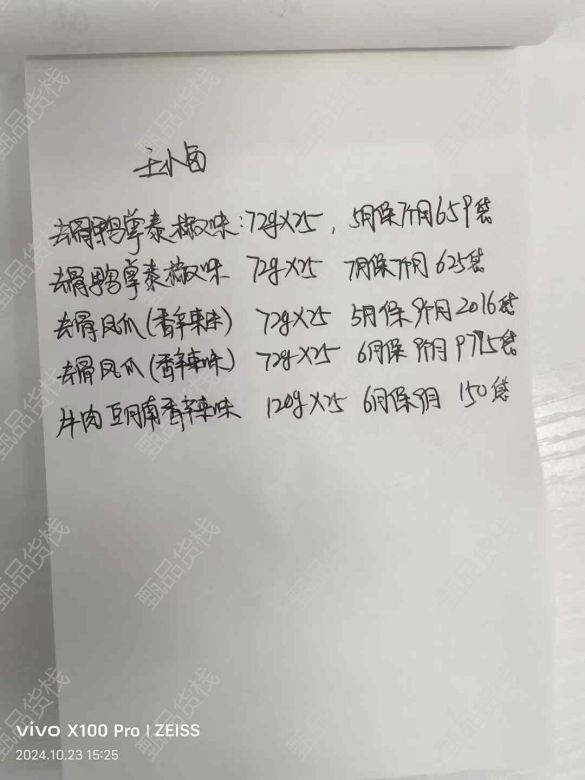 王小卤
去骨鸭掌泰椒味:72g×25, 5月保7个月659袋
去骨鸭掌泰椒味 72g×25 7月保7个月 625袋
去骨凤爪(香辣味) 72g×25 5月保9个月2016袋
去骨凤爪(香辣味) 72g×25 6月保9个月 袋
牛肉豆腩香辣味 120g×25 6月保9个月 150袋
vivo X100 Pro | ZEISS
2024.10.23 15:25
甄品货栈